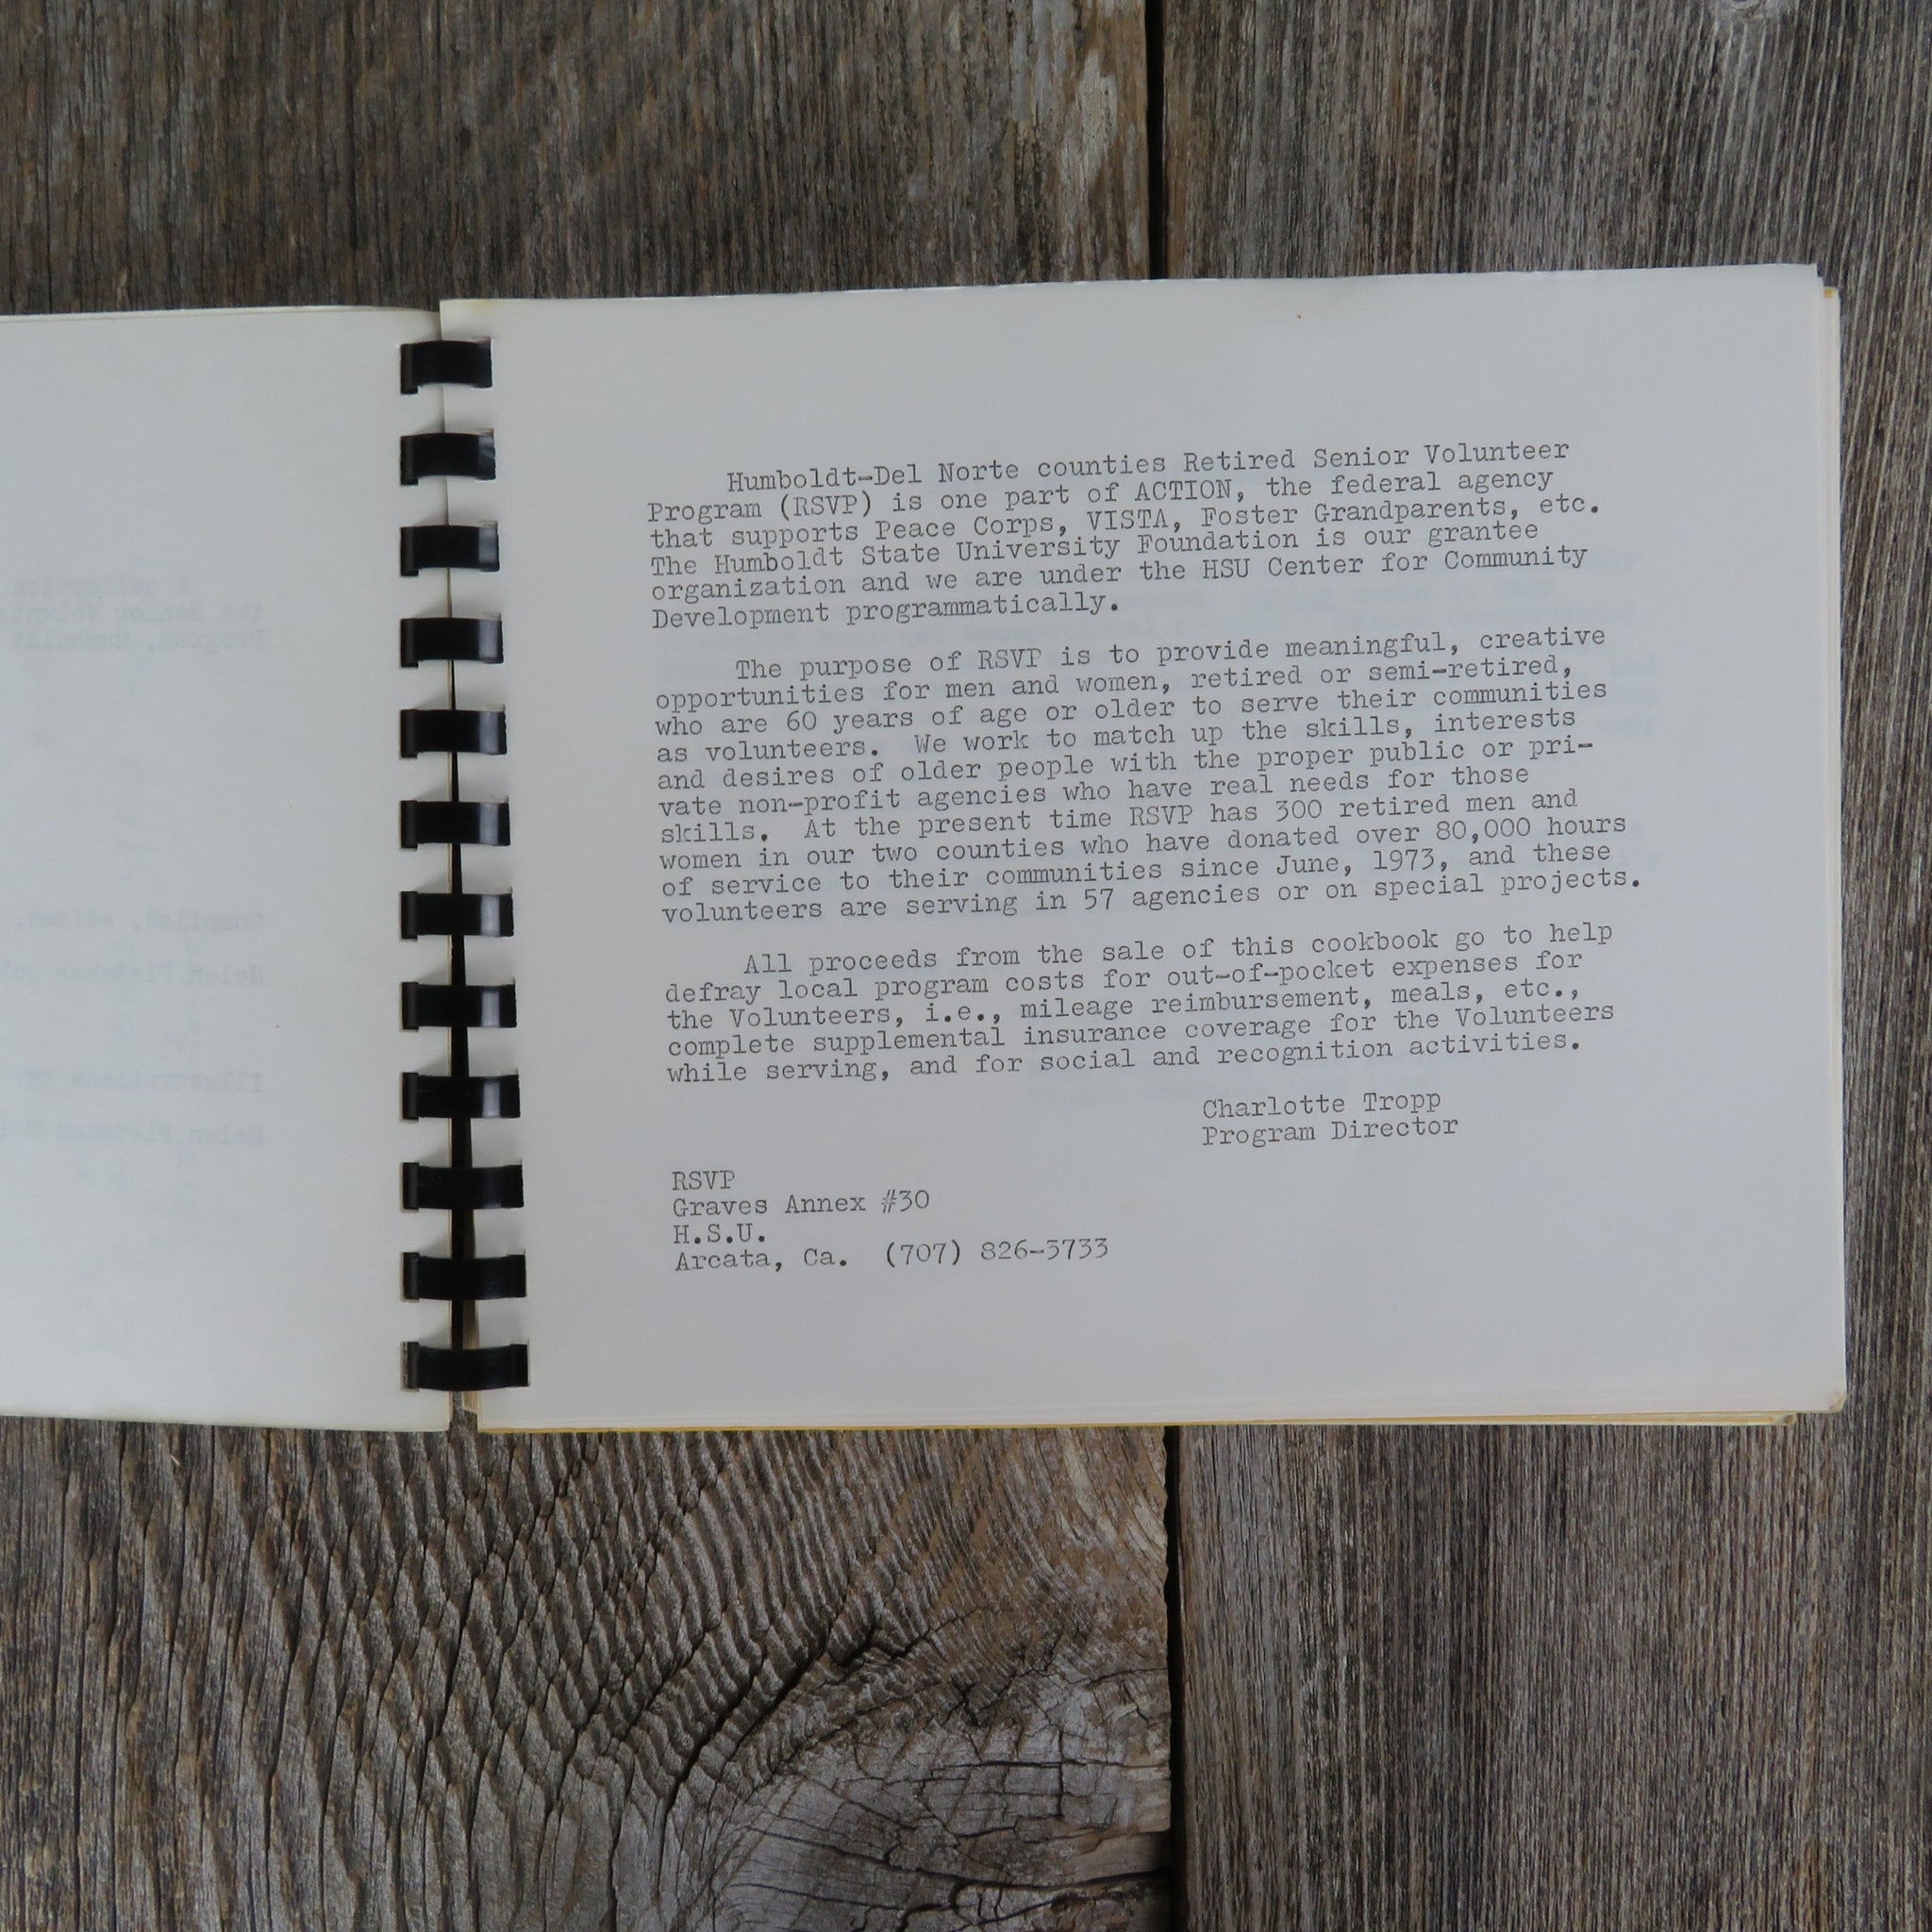 Humboldt-Del Norte counties Retired Senior Volunteer
Program (RSVP) is one part of ACTION, the federal agency
that supports Peace Corps, VISTA, Foster Grandparents, etc.
The Humboldt State University Foundation is our grantee
organization and we are under the HSU Center for Community
Development programmatically.
The purpose of RSVP is to provide meaningful, creative
opportunities for men and women, retired or semi-retired,
who are 60 years of age or older to serve their communities
as volunteers. We work to match up the skills, interests
and desires of older people with the proper public or pri-
vate non-profit agencies who have real needs for those
skills. At the present time RSVP has 300 retired men and
women in our two counties who have donated over 80,000 hours
of service to their communities since June, 1973, and these
volunteers are serving in 57 agencies or on special projects.
All proceeds from the sale of this cookbook go to help
defray local program costs for out-of-pocket expenses for
the Volunteers, i.e., mileage reimbursement, meals, etc.,
complete supplemental insurance coverage for the Volunteers
while serving, and for social and recognition activities.
Charlotte Tropp
Program Director
RSVP
Graves Annex #30
H.S.U.
Arcata, Ca. (707) 826-3733